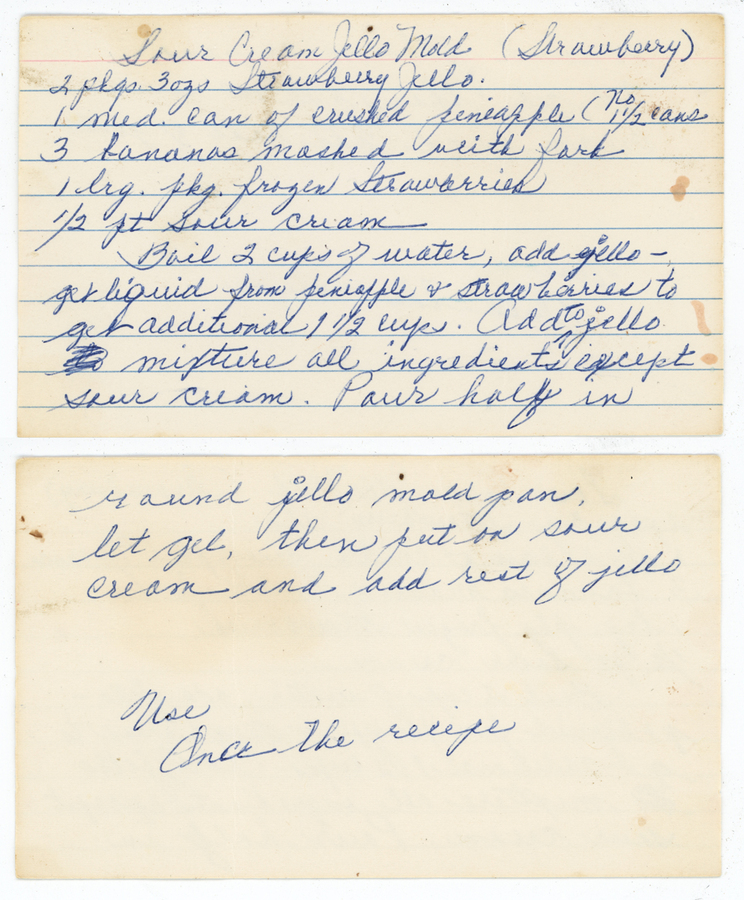 Sour Cream Jello Mold (Strawberry)
2 pkgs. 3ozs Strawberry Jello.
1 med. can of crushed peneapple (No 1 1/2 cans
3 bananas mashed with fork
1 lrg. pkg. frozen Strawberries
1/2 pt sour cream
Boil 2 cups of water, add jello –
get liquid from peneapple & strawberries to
get additional 1 1/2 cups. Add to jello
mixture all ingredients except
sour cream. Pour half in
round jello mold pan,
let gel, then put on sour
cream and add rest of jello
Use
Once the recipe